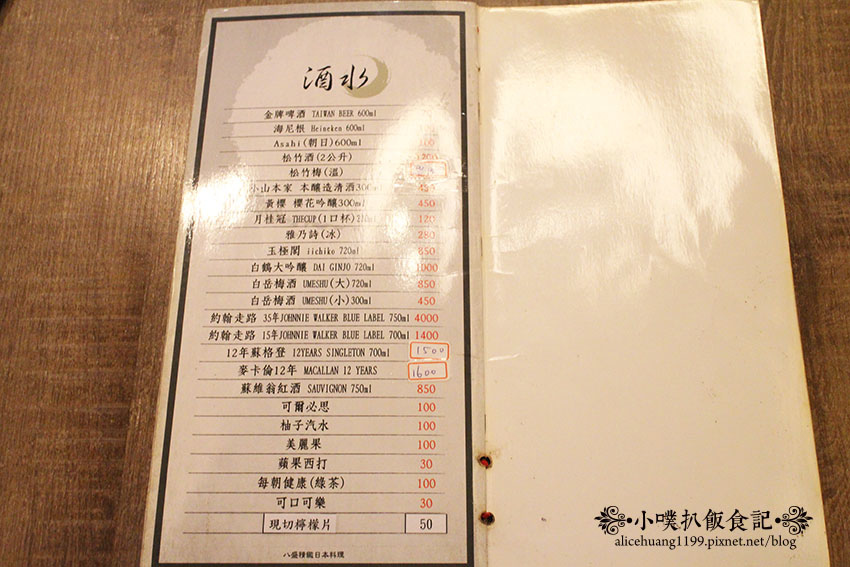 酒水
金牌啤酒 TAIWAN BEER 600ml
海尼根 Heineken 600ml
Asahi(朝日)600ml
松竹酒(2公升) 1200
松竹梅(溫)
小山本家 本釀造清酒300ml
黃櫻 櫻花吟釀300ml 450
月桂冠 THECUP(1口杯) 120
雅乃詩(冰) 280
玉極閣 iichiko 720ml 850
白鶴大吟釀 DAI GINJO 720ml 1000
白岳梅酒 UMESHU(大)720ml 850
白岳梅酒 UMESHU(小)300ml 450
約翰走路 35年JOHNNIE WALKER BLUE LABEL 750ml 4000
約翰走路 15年JOHNNIE WALKER BLUE LABEL 700ml 1400
12年蘇格登 12YEARS SINGLETON 700ml 1500
麥卡倫12年 MACALLAN 12 YEARS 1600
蘇維翁紅酒 SAUVIGNON 750ml 850
可爾必思 100
柚子汽水 100
美麗果 100
蘋果西打 30
每朝健康(綠茶) 100
可口可樂 30
現切檸檬片 50
八盛精緻日本料理
•小噗扒飯食記•
alicehuang1199.pixnet.net/blog